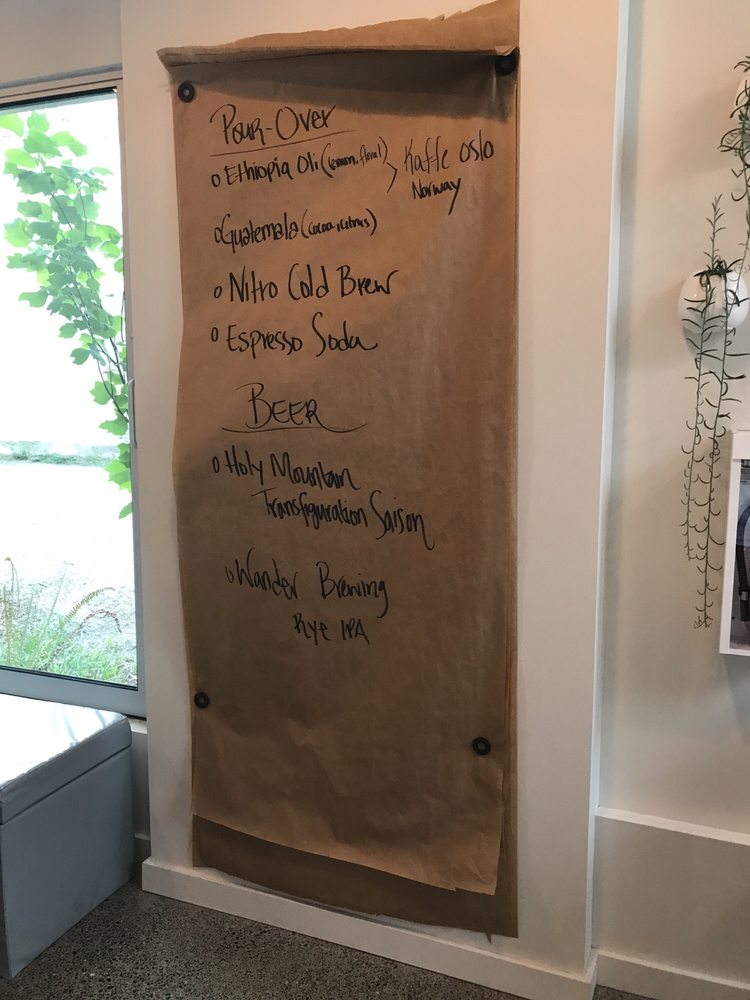 Pour-Over
o Ethiopia Oli (lemon, floral) } Kaffe Oslo
Norway
o Guatemala (cocoa, citrus)
o Nitro Cold Brew
o Espresso Soda
BEER
o Holy Mountain
Transfiguration Saison
o Wander Brewing
Rye IPA